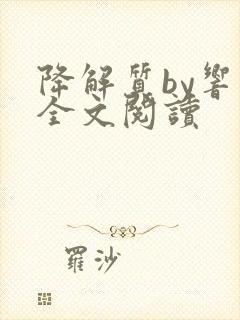 降解質by響
全文閱讀
羅沙